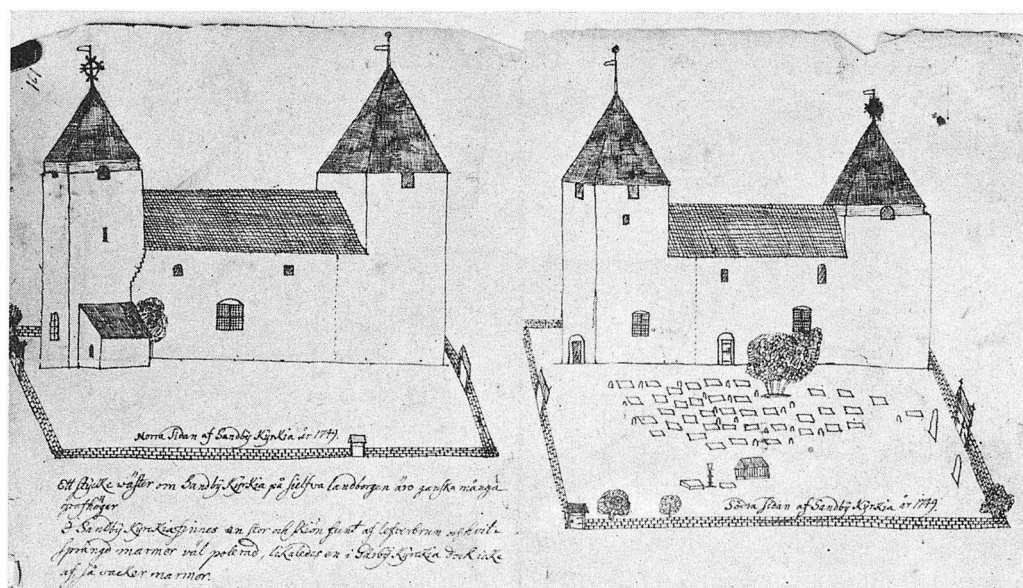 161
Norra Sidan af Sandby Kyrkia år 1749.
Ett stycke wäster om Sandby Kyrkia på sielfva landborgen äro ganska många
grafhögar
I Sandby Kyrkia finnes en stor och skiön funt af lefverbrun och hvit
sprängd marmor väl polerad, likaledes en i Gårdby Kyrkia dock icke
af så vacker marmor.
Södra Sidan af Sandby Kyrkia år 1749.